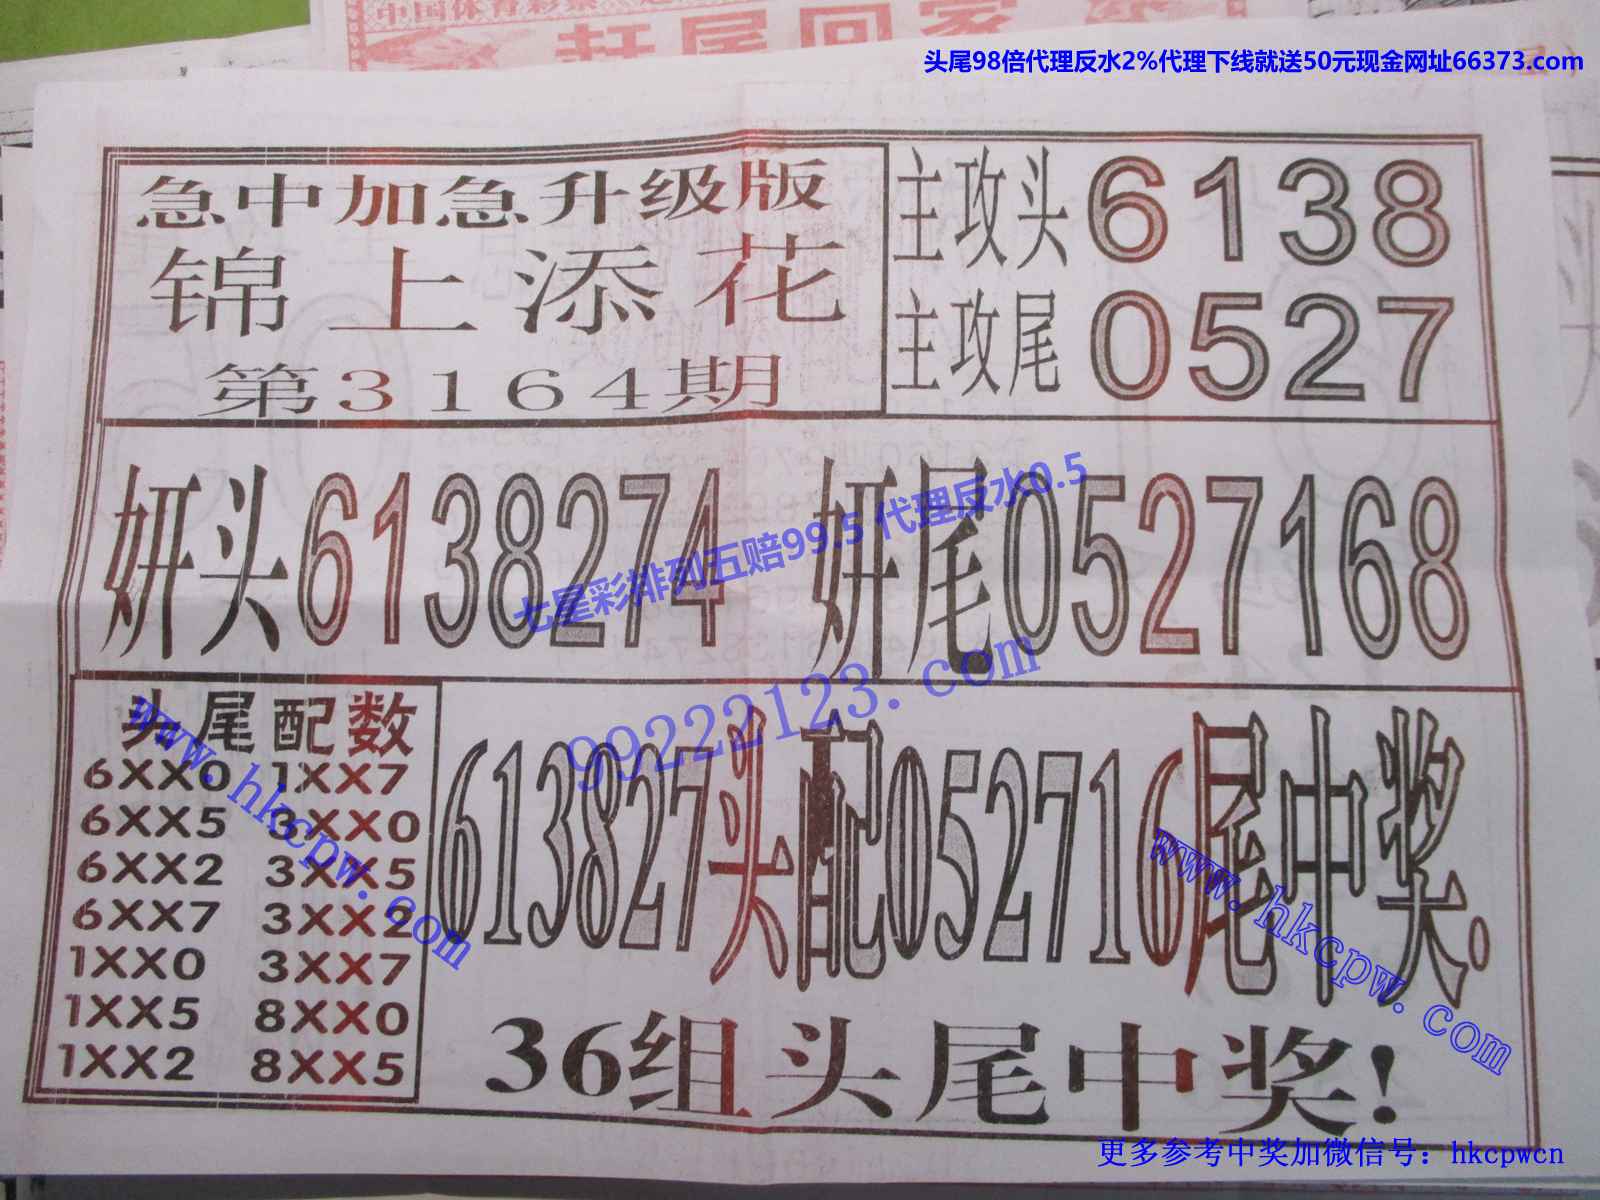 中国体育彩票
赶尾回家
头尾98倍代理反水2%代理下线就送50元现金网址66373.com
急中加急升级版
锦上添花
第3164期
主攻头6138
主攻尾0527
妍头6138274 妍尾0527168
七星彩排列五赔99.5 代理反水0.5
99222123.com
头尾配数
6XX0 1XX7
6XX5 3XX0
6XX2 3XX5
6XX7 3XX2
1XX0 3XX7
1XX5 8XX0
1XX2 8XX5
www.hkcpw.com
613827头配052716尾中奖.
www.hkcpw.com
36组头尾中奖!
更多参考中奖加微信号：hkcpwcn